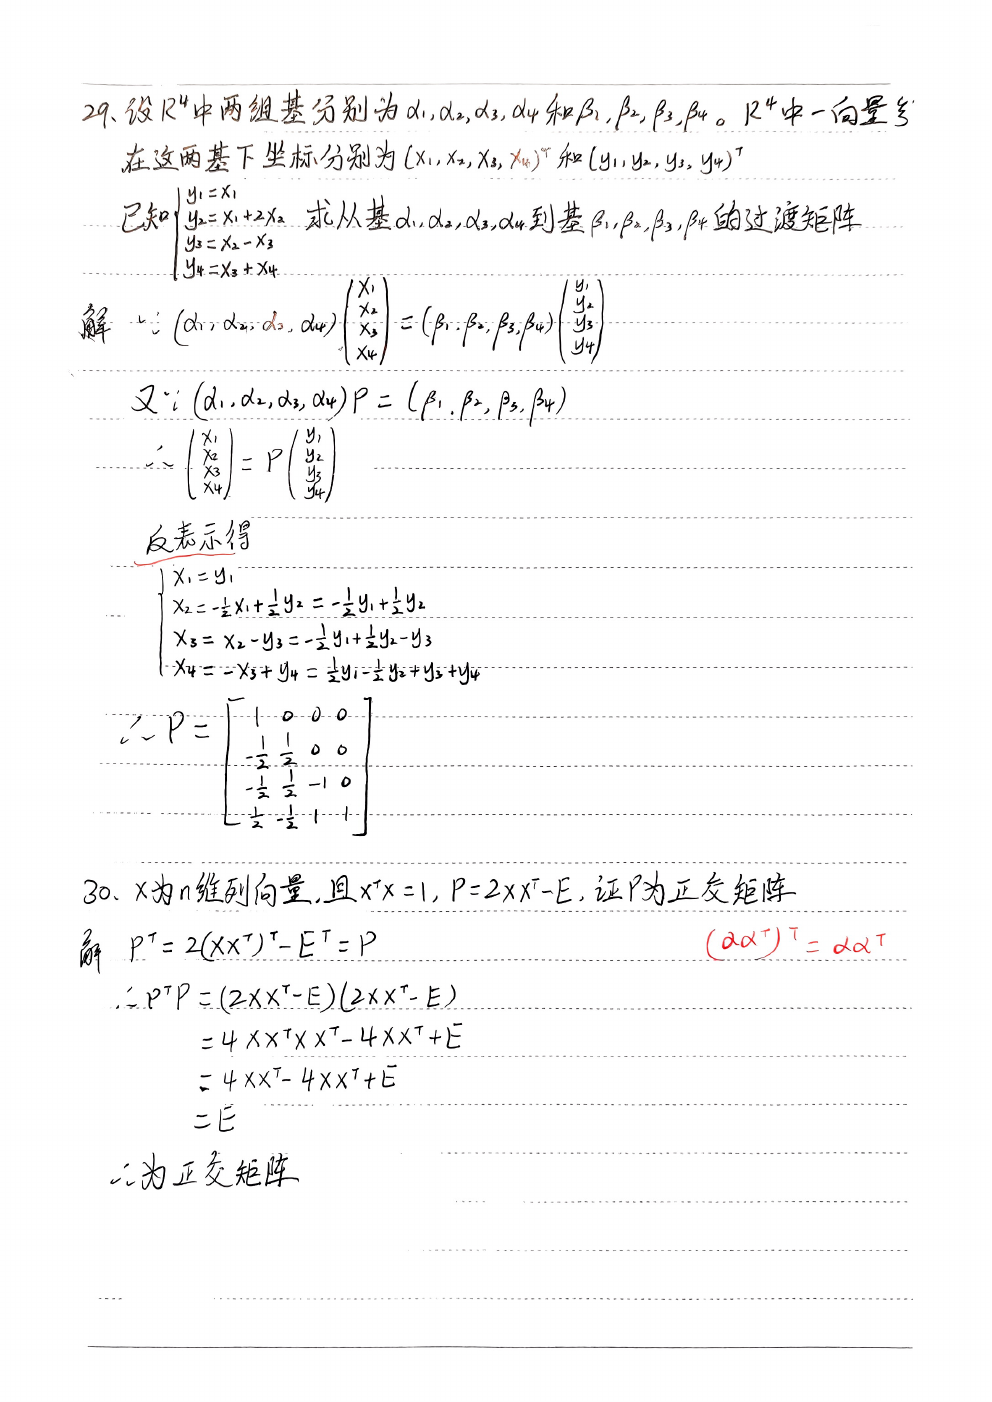 29、设R⁴中两组基分别为α₁,α₂,α₃,α₄和β₁,β₂,β₃,β₄。R⁴中一向量ξ
在这两基下坐标分别为(x₁,x₂,x₃,x₄)ᵀ和(y₁,y₂,y₃,y₄)ᵀ
已知{y₁=x₁ y₂=x₁+2x₂ y₃=x₂-x₃ y₄=x₃+x₄ 求从基α₁,α₂,α₃,α₄到基β₁,β₂,β₃,β₄的过渡矩阵
解 ∵(α₁,α₂,α₃,α₄)(x₁ x₂ x₃ x₄)=(β₁,β₂,β₃,β₄)(y₁ y₂ y₃ y₄)
又∵(α₁,α₂,α₃,α₄)P=(β₁,β₂,β₃,β₄)
∴(x₁ x₂ x₃ x₄)=P(y₁ y₂ y₃ y₄)
反表示得
x₁=y₁
x₂=-½x₁+½y₂=-½y₁+½y₂
x₃=x₂-y₃=-½y₁+½y₂-y₃
x₄=-x₃+y₄=½y₁-½y₂+y₃+y₄
∴P=[1 0 0 0
-½ ½ 0 0
-½ ½ -1 0
½ -½ 1 1]
30、X为n维列向量,且XᵀX=1,P=2XXᵀ-E,证P为正交矩阵
解 Pᵀ=2(XXᵀ)ᵀ-Eᵀ=P (ααᵀ)ᵀ=ααᵀ
∴PᵀP=(2XXᵀ-E)(2XXᵀ-E)
=4XXᵀXXᵀ-4XXᵀ+E
=4XXᵀ-4XXᵀ+E
=E
∴为正交矩阵